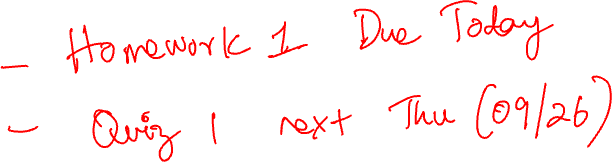 - Homework 1 Due Today
- Quiz 1 next Thu (09/26)